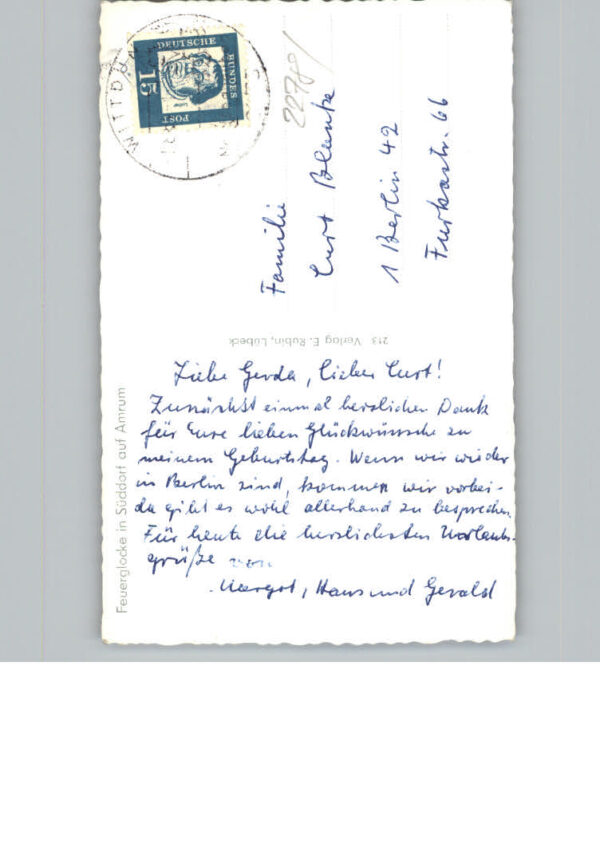 WITTDÜN
DEUTSCHE
BUNDES
POST
15
2278/
Familie
Curt Blanke
1 Berlin 42
Furkastr. 66
213 Verlag E. Rubin, Lübeck
Feuerglocke in Süddorf auf Amrum
Liebe Gerda, lieber Curt!
Zunächst einmal herzlichen Dank
für Eure lieben Glückwünsche zu
meinem Geburtstag. Wenn wir wieder
in Berlin sind, kommen wir vorbei-
da gibt es wohl allerhand zu besprechen.
Für heute die herzlichsten Urlaubs-
grüße von
Margot, Hans und Gerald